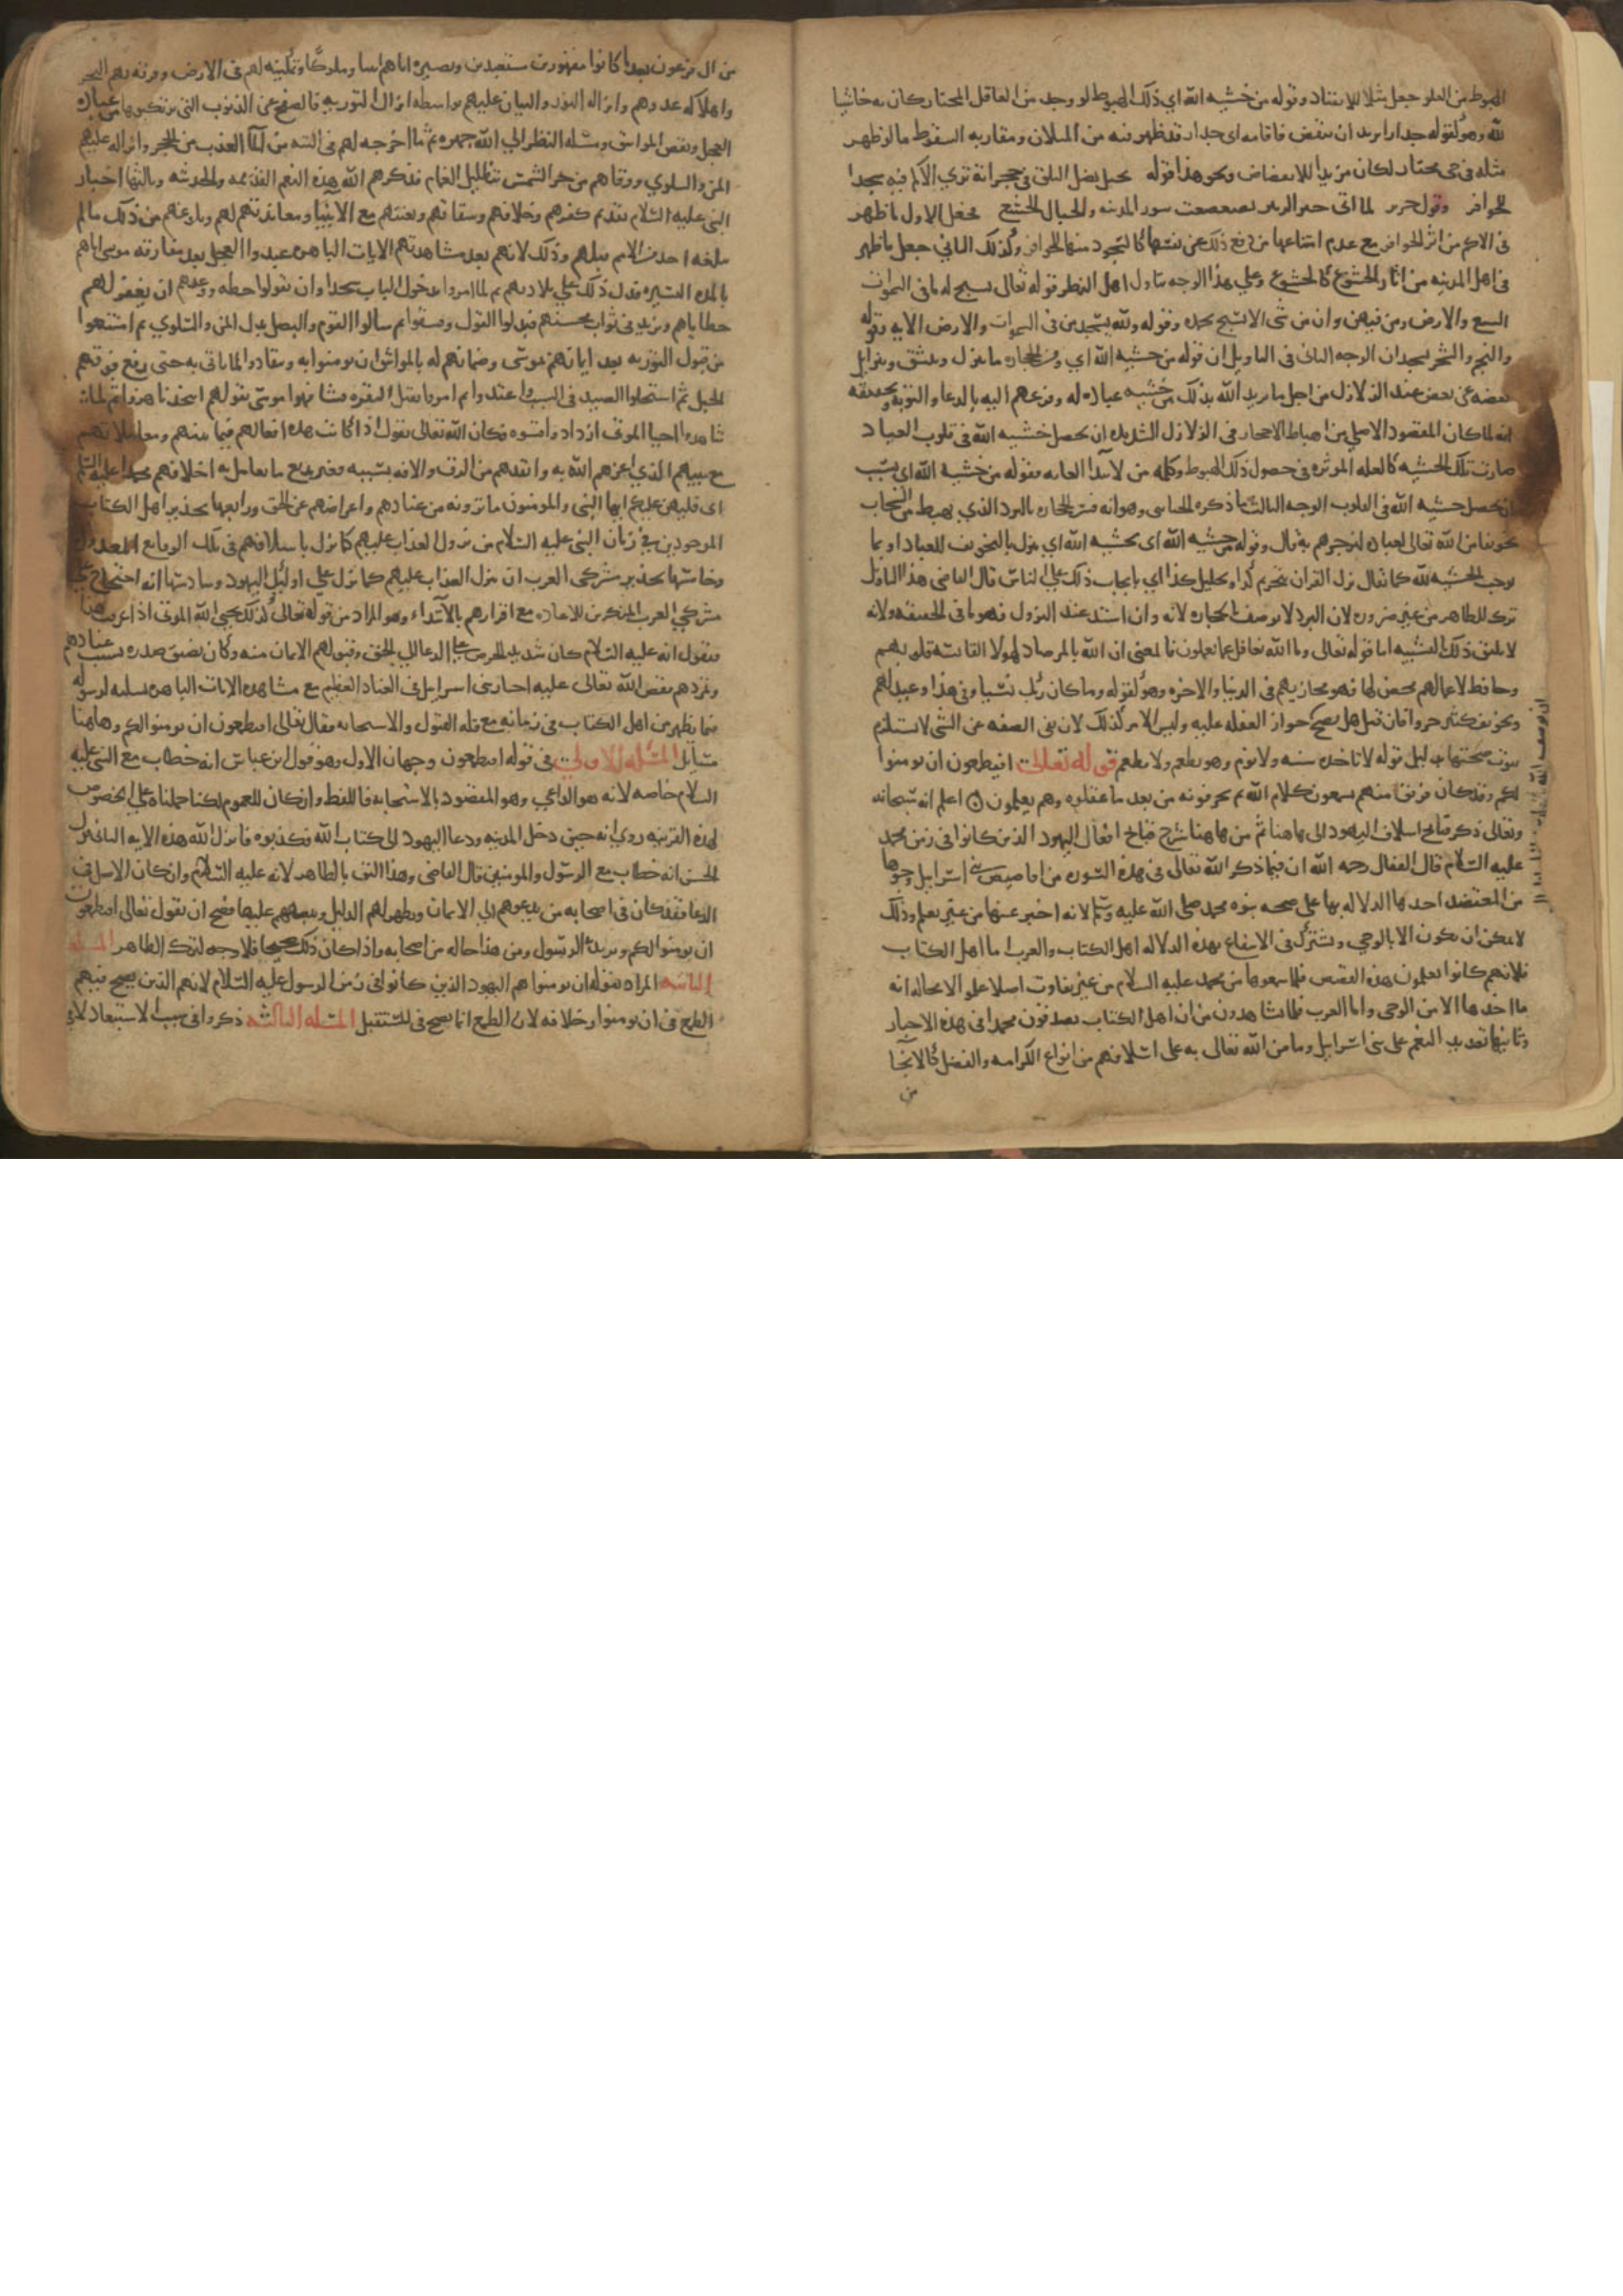 الهبوط من العلو جعل مثلا للانقياد وقوله من خشيه الله اي ذلك الهبوط لو وجد من العاقل المختار كان به خاشيا
لله وهو كقوله جدارا يريد ان ينقض فاقامه اي جدار قد ظهر فيه من الميلان ومقاربه السقوط ما لو ظهر
مثله في حي مختار لكان مريدا للانقضاض ونحو هذا قوله بخيل تضل البلق في حجراته تري الاكم فيه سجدا
للحوافر وقول جرير لما اتى خبر الزبير تضعضعت سور المدينه والجبال الخشع فجعل الاول ما ظهر
في الاكم من اثر الحوافر مع عدم امتناعها من دفع ذلك عن نفسها كالسجود منها للحوافر وكذلك الثاني جعل ما ظهر
في اهل المدينه من اثار الخشوع كالخشوع وعلي هذا الوجه تاول اهل النظر قوله تعالى تسبح له ما في السموات
السبع والارض ومن فيهن وان من شي الا يسبح بحمده وقوله ولله يسجد من في السموات والارض الايه وقوله
والنجم والشجر يسجدان الوجه الثاني في التاويل ان قوله من خشيه الله اي ومن الحجاره ما ينزل وينشق ويتزايل
بعضه عن بعض عند الزلازل من اجل ما يريد الله بذلك من خشيه عباده له وفزعهم اليه بالدعا والتوبه وتحقيقه
انه لما كان المقصود الاصلي من اهباط الاحجار في الزلازل الشديده ان تحصل خشيه الله في قلوب العباد
صارت تلك الخشيه كالعله الموثره في حصول ذلك الهبوط وكلمه من لابتدا الغايه فقوله من خشيه الله اي بسبب
ان تحصل خشيه الله في القلوب الوجه الثالث ما ذكره الجباىي وهو انه فسر الحجاره بالبرد الذي يهبط من السحاب
تخويفا من الله تعالى لعباده ليزجرهم به قال وقوله من خشيه الله اي بخشيه الله اي ينزل بالتخويف للعباد او بما
يوجب الخشيه لله كما يقال نزل القران بتحريم كذا وتحليل كذا اي بايجاب ذلك علي الناس قال القاضي هذا التاويل
ترك للظاهر من غير ضروره لان البرد لا يوصف بالحجاره لانه وان اشتد عند النزول فهو ما في الحقيقه ولانه
لا يليق ذلك التشبيه اما قوله تعالى وما الله بغافل عما تعملون فالمعنى ان الله بالمرصاد لهولا القاسيه قلوبهم
وحافظ لاعمالهم محصن لها فهو مجازيهم في الدنيا والاخره وهو كقوله وما كان ربك نسيا وفي هذا وعيد لهم
وتخويف كثير جروا فان قيل هل يصح جواز الغفله عليه وليس الامر كذلك لان نفي الصفه عن الشي لا يستلزم
ثبوت صحتها بدليل قوله لا تاخذه سنه ولا نوم وهو يطعم ولا يطعم قوله تعالى افتطمعون ان يومنوا
لكم وقد كان فريق منهم يسمعون كلام الله ثم يحرفونه من بعد ما عقلوه وهم يعلمون اعلم انه سبحانه
وتعالى ذكر قبايح اسلاف اليهود الى هاهنا ثم من هاهنا شرح قبايح افعال اليهود الذين كانوا في زمن محمد
عليه السلام قال القفال رحمه الله ان فيما ذكر الله تعالى في هذه السوره من اقاصيص بني اسرايل وجوها
من المقصد احدها الدلاله بها على صحه نبوه محمد صلى الله عليه وسلم لانه اخبر عنها من غير تعلم وذلك
لا يمكن ان يكون الا بالوحي ويشترك في الانتفاع بهذه الدلاله اهل الكتاب والعرب اما اهل الكتاب
فلانهم كانوا يعلمون هذه القصص فلما سمعوها من محمد عليه السلام من غير تفاوت اصلا علموا لا محاله انه
ما اخذها الا من الوحي واما العرب فلما يشاهدون من ان اهل الكتاب يصدقون محمدا في هذه الاخبار
وثانيها تعديد النعم على بني اسرايل وما من الله تعالى به على اسلافهم من انواع الكرامه والفضل كالانجا
من
من ال فرعون بعد ما كانوا مقهورين مستعبدين وتصييره اياهم انبيا وملوكا وتمكينه لهم في الارض وفرقه بهم البحر
واهلاكه عدوهم وانزاله النور والبيان عليهم بواسطه انزال التوريه فالصفح عن الذنوب التي ارتكبوها من عباده
العجل ونقض المواثيق ومسله النظر الي الله جهره ثم ما اخرجه لهم في التيه من الما العذب من الحجر وانزاله عليهم
المن والسلوي ووقاهم من حر الشمس بتظليل الغمام فذكرهم الله هذه النعم القديمه والحديثه وثالثها اخبار
النبي عليه السلام بتقديم كفرهم وخلافهم وشقاقهم وتعنتهم مع الانبيا ومعاندتهم لهم وبلوغهم من ذلك ما لم
يبلغه احد من الامم قبلهم وذلك لانهم بعد مشاهدتهم الايات الباهره عبدوا العجل بعد مفارقه موسى اياهم
بالمده اليسيره فدل ذلك علي بلادتهم ثم لما امروا بدخول الباب سجدا وان يقولوا حطه ووعدهم ان يغفر لهم
خطاياهم ويزيد في ثواب محسنهم فبدلوا القول وفسقوا ثم سالوا الفوم والبصل بدل المن والسلوي ثم امتنعوا
من قبول التوريه بعد ايمانهم بموسى وضمانهم له بالمواثيق ان يومنوا به وينقادوا لما ياتي به حتى رفع فوقهم
الجبل ثم استحلوا الصيد في السبت واعتدوا ثم امروا بقتل البقره فشافهوا موسى بقولهم اتتخذنا هزوا ثم لما
شاهدوا احيا الموتى ازدادوا قسوه فكان الله تعالى يقول اذا كانت هذه افعالهم فيما بينهم ومعاملاتهم
مع نبيهم الذي اعزهم الله به وانقذهم من الرق والافه بسببه فغير بديع ما يعامل به اخلافهم محمدا عليه السلم
اي فليهن عليكم ايها النبي والمومنون ما ترونه من عنادهم واعراضهم عن الحق ورابعها تحذير اهل الكتاب
الموجودين في زمان النبي عليه السلام من نزول العذاب عليهم كما نزل باسلافهم في تلك الوقايع المعدوده
وخامسها تحذير مشركي العرب ان ينزل العذاب عليهم كما نزل علي اولئك اليهود وسادسها انه احتجاج علي
مشركي العرب المنكرين للاعاده مع اقرارهم بالابتداء وهو المراد من قوله تعالى كذلك يحيي الله الموتى اذا عرفت هذا
فنقول انه عليه السلام كان شديد الحرص علي الدعا الي الحق وقبولهم الايمان منه وكان يضيق صدره بسبب عنادهم
وتمردهم فقص الله تعالى عليه اخبار بني اسرايل في العناد العظيم مع مشاهده الايات الباهره تسليه لرسوله
فيما يظهر من اهل الكتاب في زمانه مع قله القبول والاستجابه فقال تعالى افتطمعون ان يومنوا لكم وهاهنا
مسايل المسله الاولي في قوله افتطمعون وجهان الاول وهو قول ابن عباس انه خطاب مع النبي عليه
السلام خاصه لانه هو الداعي وهو المقصود بالاستجابه فاللفظ وان كان للعموم لكنا حملناه علي الخصوص
لهذه القرينه روي انه حين دخل المدينه ودعا اليهود الى كتاب الله فكذبوه فانزل الله هذه الايه
الحسن انه خطاب مع الرسول والمومنين قال القاضي وهذا اليق بالظاهر لانه عليه السلام وان كان الاصل في
الدعا فقد كان في اصحابه من يدعوهم الي الايمان ويظهر لهم الدليل وينبههم عليها فصح ان يقول تعالى افتطمعون
ان يومنوا لكم ويريد به الرسول ومن هذا حاله من اصحابه واذا كان ذلك صحيحا فلا وجه لترك الظاهر المسله
الثانيه المراد بقوله ان يومنوا هم اليهود الذين كانوا في زمن الرسول عليه السلام لانهم الذين يصح فيهم
الطمع في ان يومنوا وخلافه لان الطمع انما يصح في المستقبل المسله الثالثه ذكروا في سبب الاستبعاد